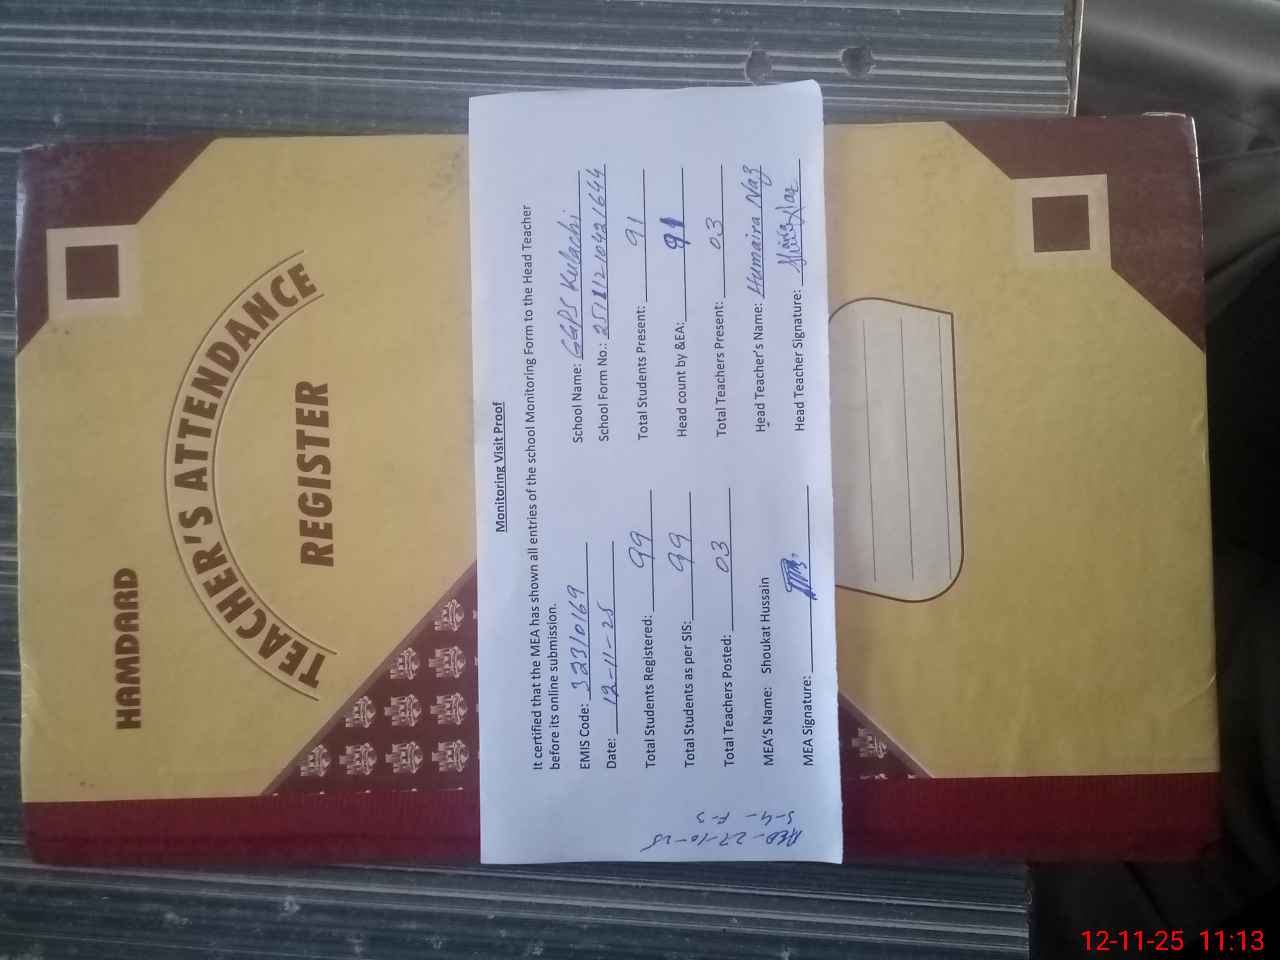 HAMDARD
TEACHER'S ATTENDANCE
REGISTER
Monitoring Visit Proof
It certified that the MEA has shown all entries of the school Monitoring Form to the Head Teacher
before its online submission.
EMIS Code: 32310169 School Name: GGPS Kulachi
Date: 12-11-25 School Form No.: 25111210421644
Total Students Registered: 99 Total Students Present: 91
Total Students as per SIS: 99 Head count by &EA: 91
Total Teachers Posted: 03 Total Teachers Present: 03
MEA'S Name: Shoukat Hussain Head Teacher's Name: Humaira Naz
MEA Signature: Head Teacher Signature:
27-10-25
S-4-F-3
12-11-25 11:13